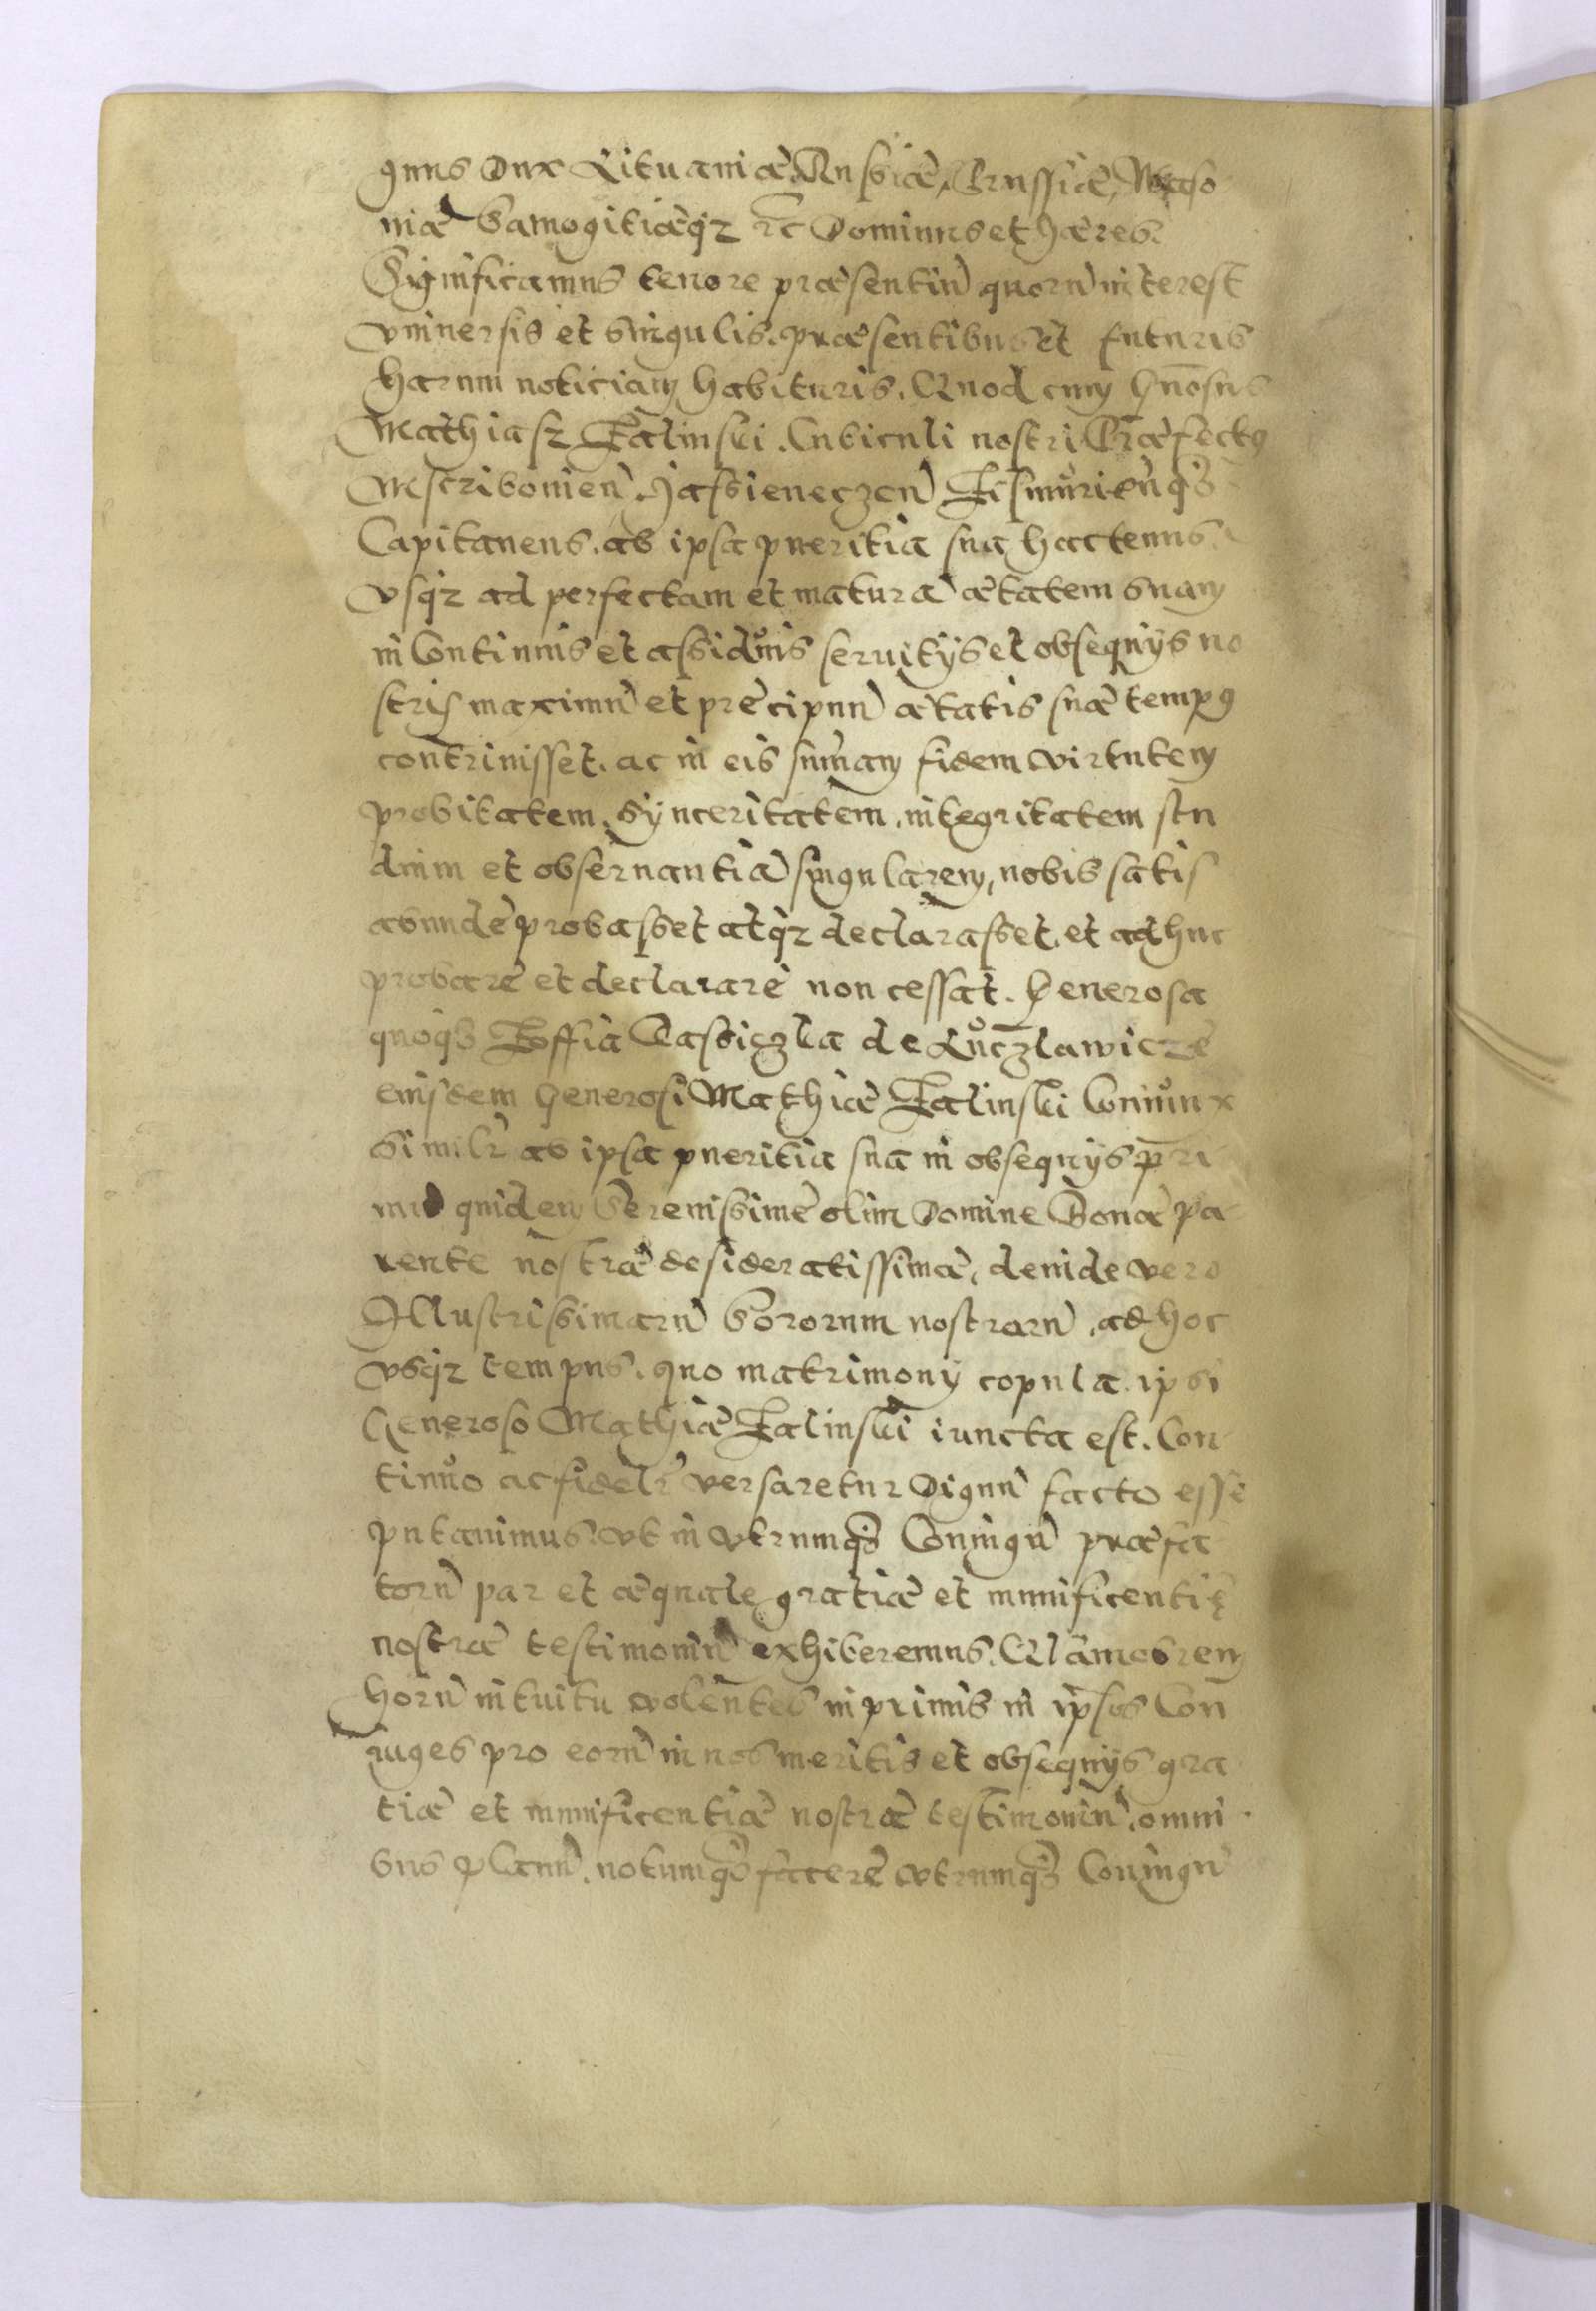 gnus Dux Lituaniæ, Russiæ, Prussiæ, Maso
niæ Samogitiæqz rc Dominus et hæres.
Significamus tenore præsentiū quorū interest
vniuersis et singulis, præsentibus et futuris
harum noticiam habituris. Quod cum gn̄osus
Mathiasz Zalinski. Cubiculi nostri Præfectꝯ
Mscibonien̄. Jassieneczen̄
Capitaneus. ab ipsa pueritia sua hactenus
vsqz ad perfectam et maturā ætatem suam
in Continuis et assiduis seruitijs et obsequijs no
stris maximū et precipuū ætatis suæ tempꝯ
contriuisset. ac in eis sum̄am fidem virtutem
probitatem. synceritatem. integritatem stu
dium et obseruantiā singularem, nobis satis
abunde probasset atqz declarasset. et adhuc
probare et declarare non cessat. Generosa
quoqꝫ Zoffia de Luczlawicze
eiusdem Generosi Mathiæ Zalinski Coniunx
similr̄ ab ipsa pueritia sua in obsequijs pri
mū quidem Serenissime olim Domine Bonæ pa
rente nostræ desideratissimæ, deinde vero
Illustrissimarū Sororum nostrarū. ad hoc
vsqz tempus. quo matrimonij copula. ipsi
Generoso Mathiæ Zalinski iuncta est. Con
tinuo ac fidelr̄ versaretur Dignū facto esse
putauimus. vt in vtrumqꝫ Coniugū præfa
torū par et æquale gratiæ et munificentię
nostræ testimoniū exhiberemus. rem
horū intuitu volentes inprimis in ipsos Con
iuges pro eorū in nos meritis et obsequijs gra
tiæ et munificentiæ nostræ testimoniū. omni
bus planū. notumqꝫ facere vtrumqꝫ Coniugū